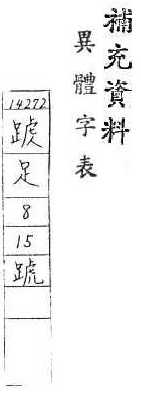 補充資料
異體字表
14272
足
8
15